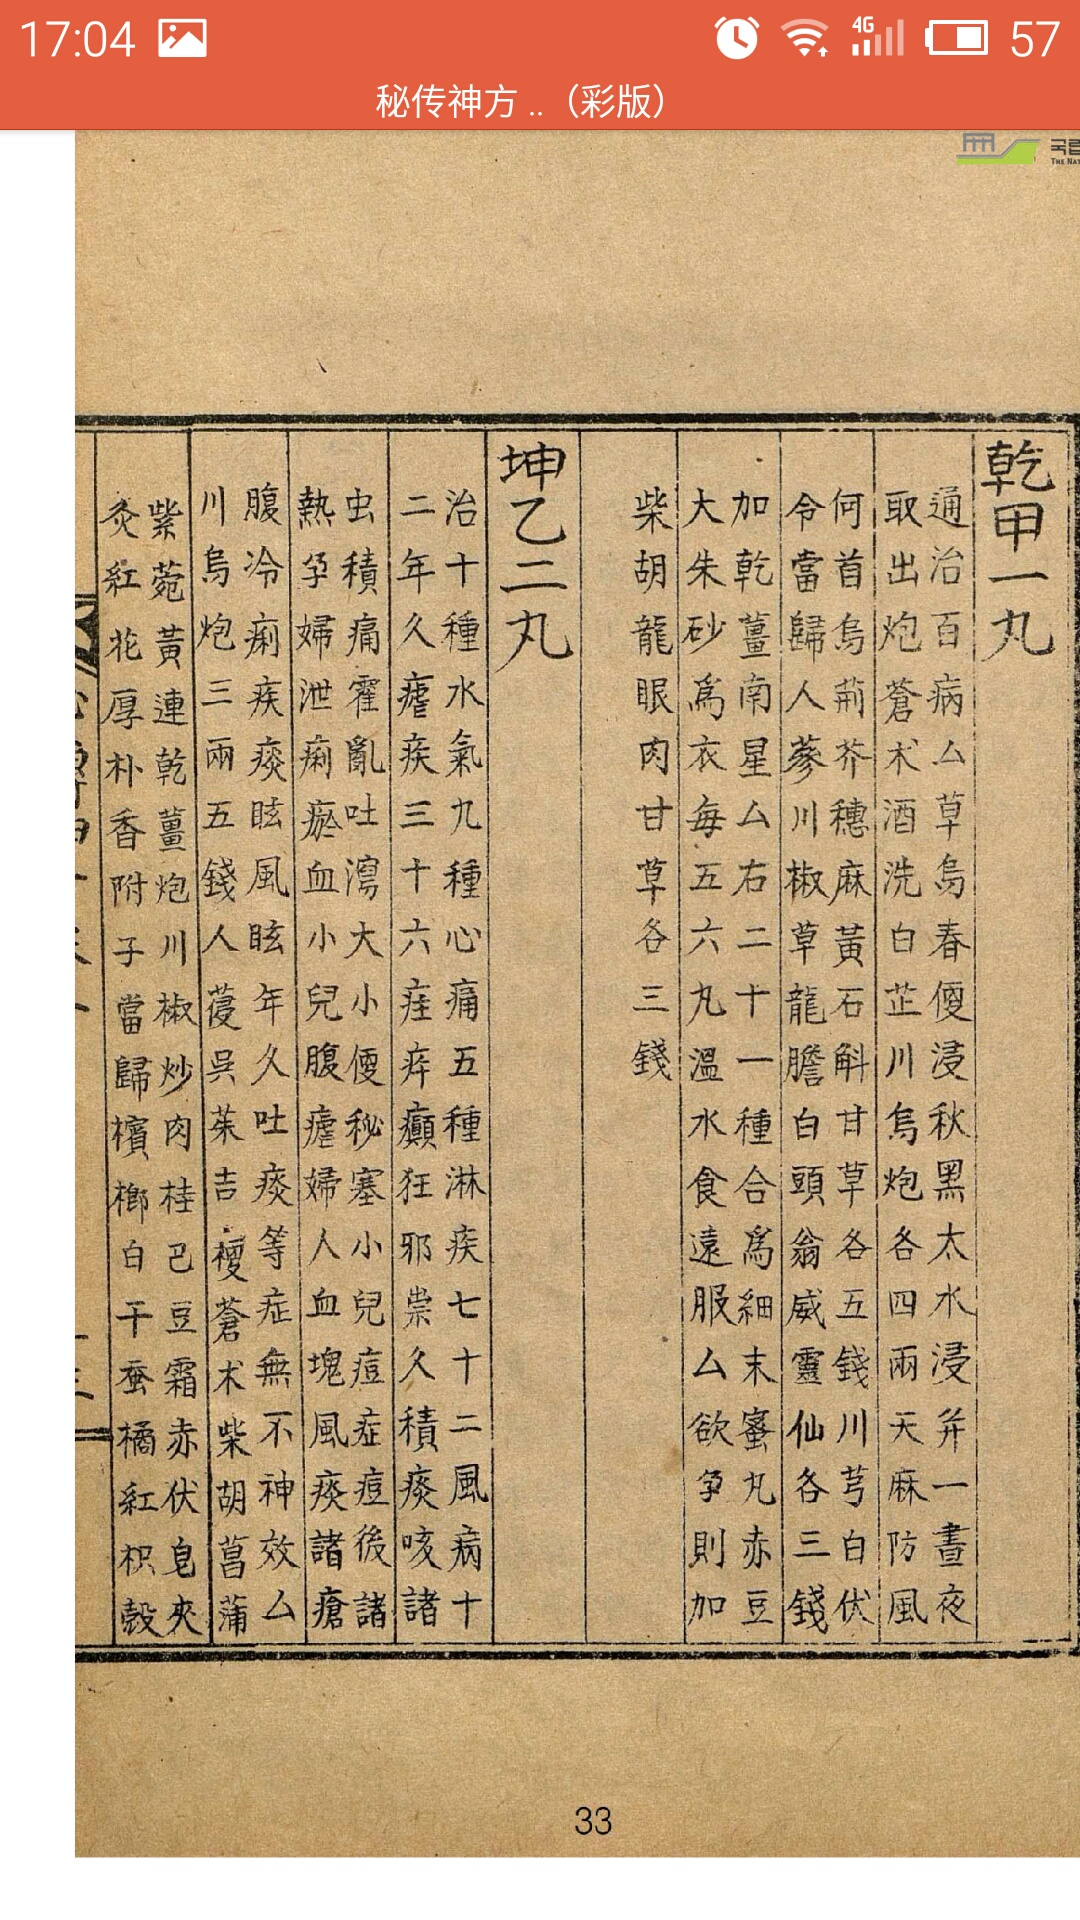 17:04
4G
57
秘传神方 ..（彩版）
국립
THE NAT
乾甲一丸
通治百病厶草烏春傻浸秋黑太水浸并一晝夜
取出炮蒼朮酒洗白芷川烏炮各四兩天麻防風
何首烏荊芥穗麻黃石斛甘草各五錢川芎白伏
令當歸人蔘川椒草龍膽白頭翁威靈仙各三錢
加乾薑南星厶右二十一種合爲細末蜜丸赤豆
大朱砂爲衣每五六丸溫水食遠服厶欲孕則加
柴胡龍眼肉甘草各三錢
坤乙二丸
治十種水氣九種心痛五種淋疾七十二風病十
二年久瘧疾三十六疰瘁癲狂邪祟久積痰咳諸
虫積痛霍亂吐瀉大小便秘塞小兒痘症痘後諸
熱孕婦泄痢瘀血小兒腹瘧婦人血塊風痰諸瘡
腹冷痢疾痰眩風眩年久吐痰等症無不神效厶
川烏炮三兩五錢人葠吳茱吉蒼朮柴胡菖蒲
紫菀黃連乾薑炮川椒炒肉桂巴豆霜赤伏皂夾
灸紅花厚朴香附子當歸檳榔白干蚕橘紅枳殼
33